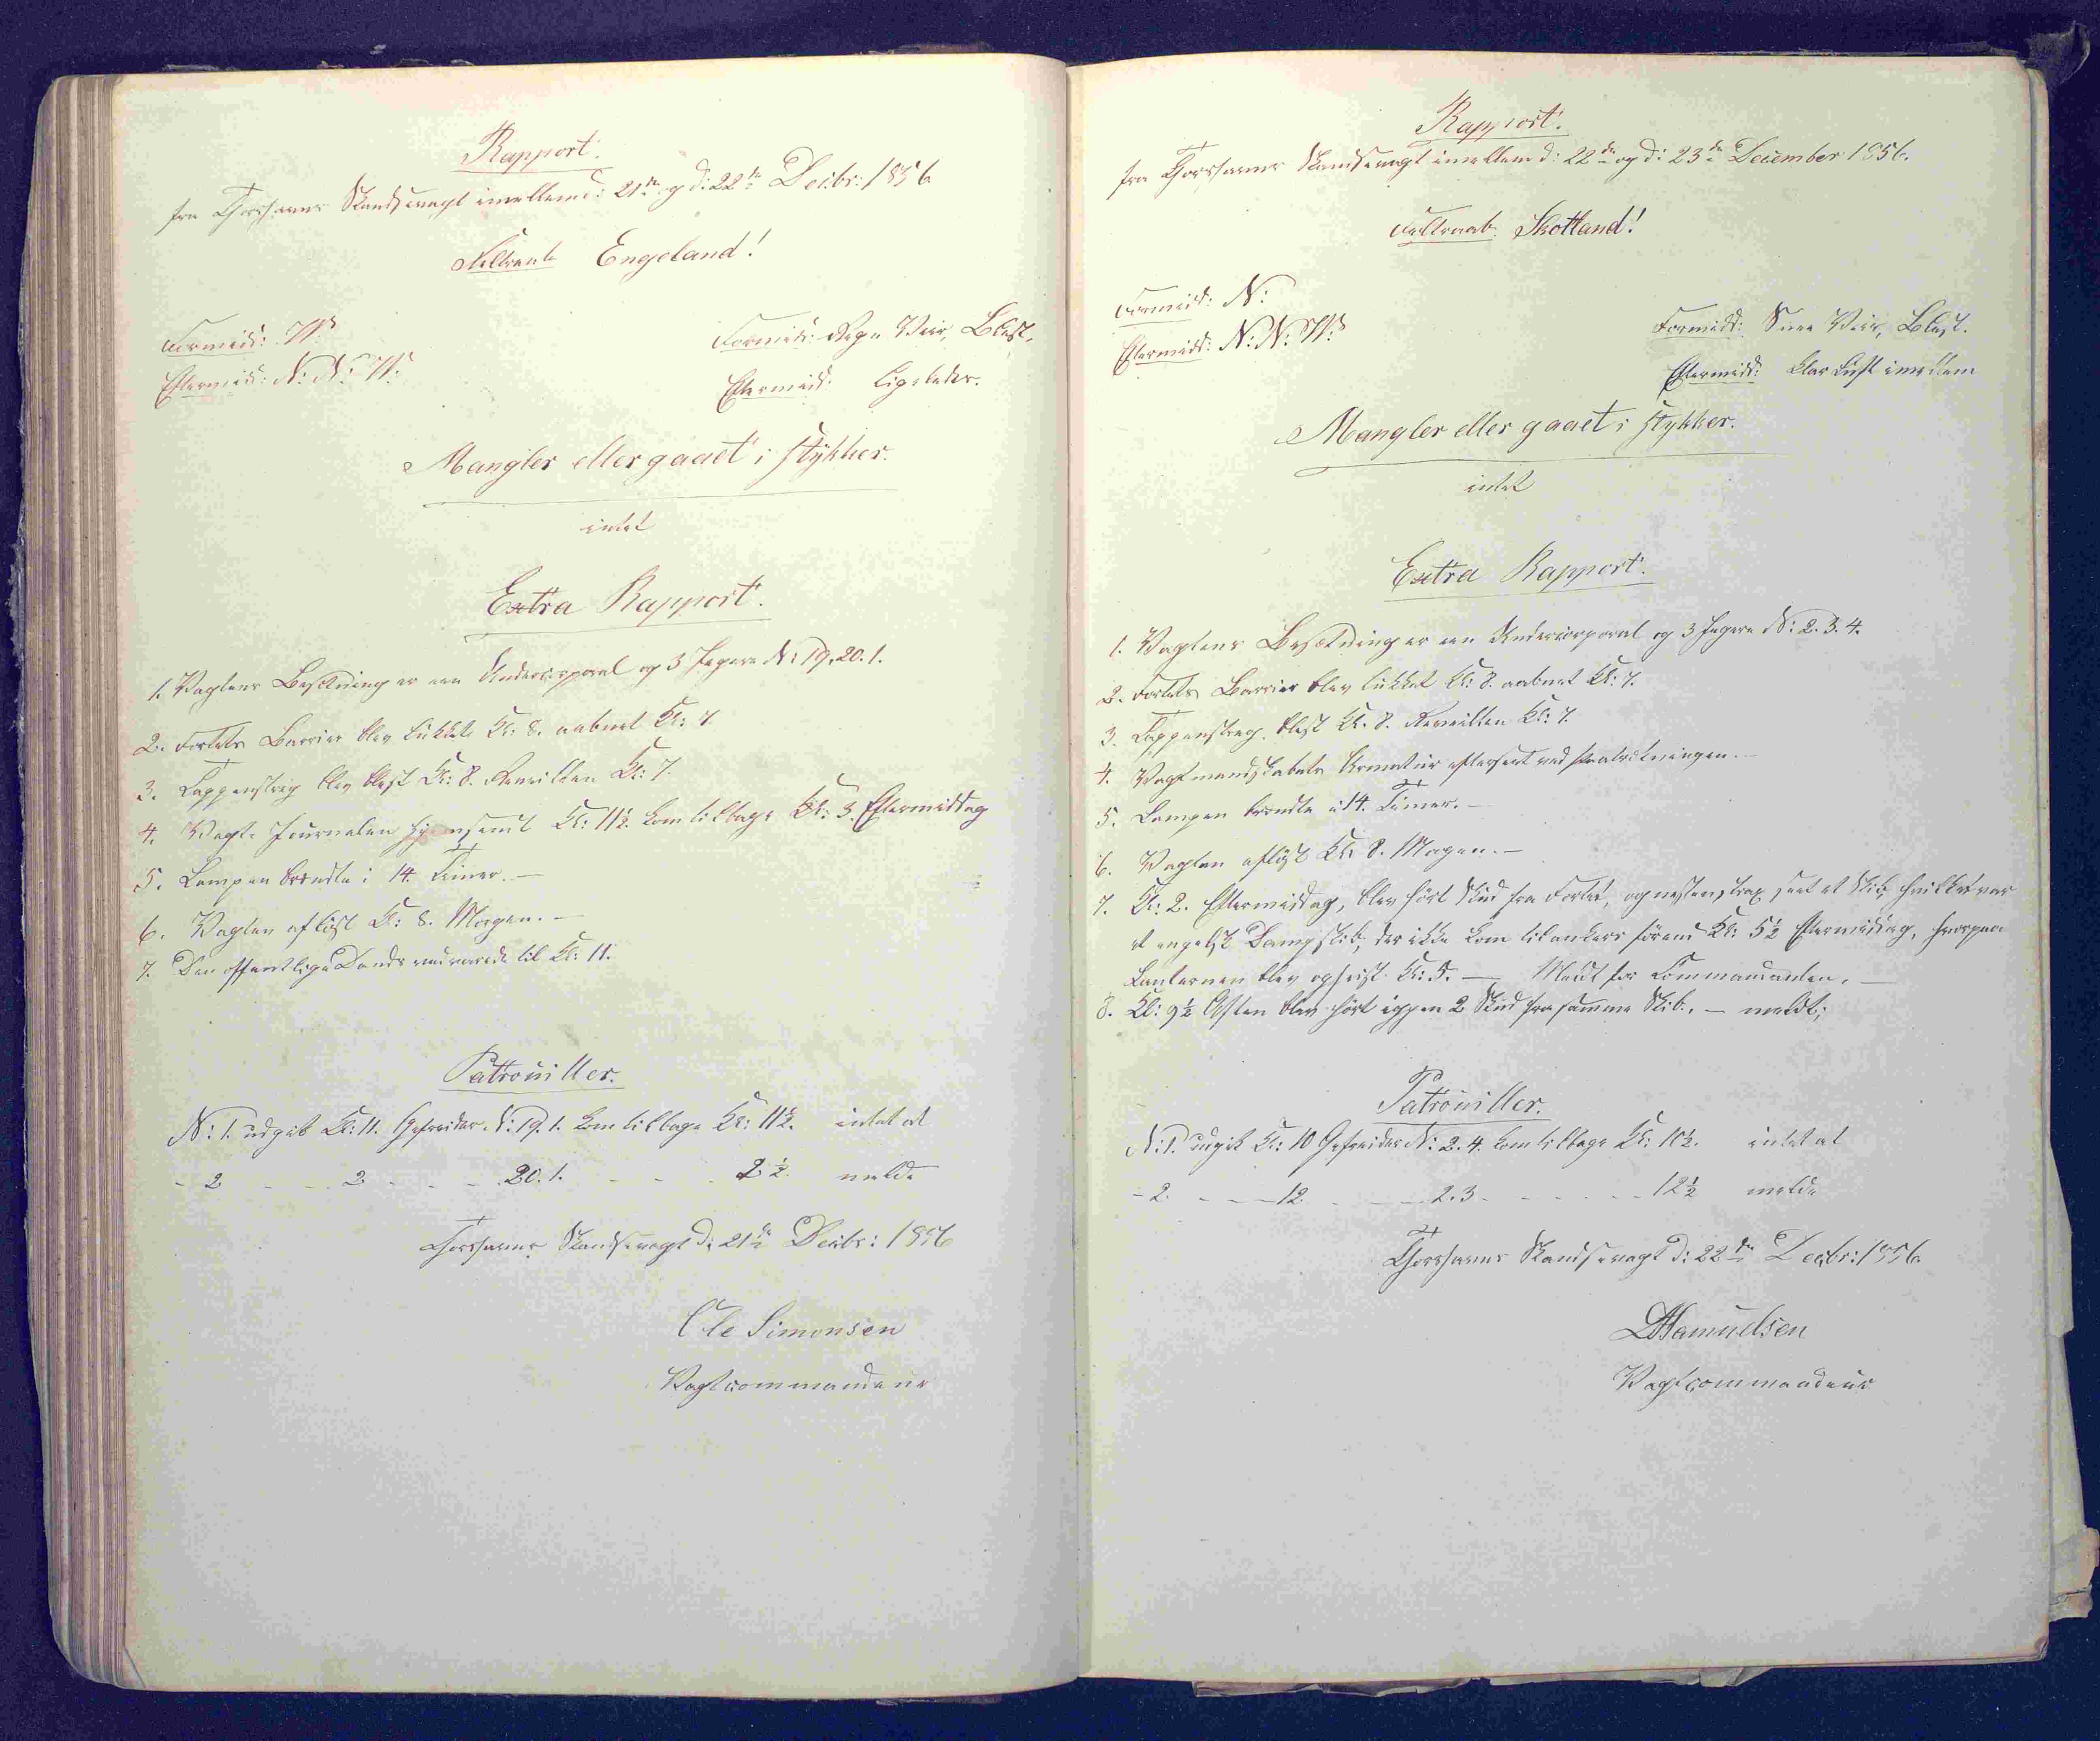 Rapport.
fra Thorshavns Skandsevagt imellem d: 21de og d: 22de Decbr: 1856
Feltraab Engeland!
Formidd: W:
Eftermidd: N: N: W:
Formidd: Regn Veir, Blæst.
Eftermidd: ligeledes.
Mangler eller gaaet i stykker.
intet
Extra Rapport.
1. Vagtens Besætning er een Undercorporal og 3 Jægere N: 19, 20. 1.
2. Fortets Barrier blev lukket Kl: 8. aabnet Kl: 7.
3. Tappenstreg blev blæst Kl: 8. Reveillen Kl: 7.
4. Vagt-Journalen hjemsendt Kl: 11½. kom tilbage Kl: 3. Eftermiddag
5. Lampen brændte i 14. Timer. —
6. Vagten afløst Kl: 8. Morgen. —
7. Den offentlige Dands vedvarede til Kl: 11.
Patrouiller.
N: 1. udgik Kl: 11. Gefreider N: 19. 1. kom tilbage Kl: 11½. intet at
- 2 - - 2 - - - 20. 1. - - - 2½. melde
Thorshavns Skandsevagt d: 21de Decbr: 1856
Ole Simonsen
Vagtcommandeur
Rapport.
fra Thorshavns Skandsevagt imellem d: 22de og d: 23de December 1856.
Feltraab. Skotland!
Formidd: N:
Eftermidd: N: N: W:
Formidd: Snee Veir, Blæst.
Eftermidd: klar Luft imellem
Mangler eller gaaet i stykker.
intet
Extra Rapport.
1. Vagtens Besætning er een Undercorporal og 3 Jægere N: 2. 3. 4.
2. Fortets Barrier blev lukket Kl: 8. aabnet Kl: 7.
3. Tappenstreg blæst Kl. 8. Reveillen Kl: 7.
4. Vagtmandskabets Armatur efterseet ved fratrædningen. —
5. Lampen brændte i 14. Timer. —
6. Vagten afløst Kl: 8. Morgen. —
7. Kl: 2. Eftermiddag, blev hört Skud fra Fortet, og næsten strax seet et Skib, hvilket var
et engelsk Dampskib, der ikke kom tilankers förend Kl: 5½ Eftermiddag, hvorpaa
Lanternen blev opheist Kl: 5. — Meldt for Commandanten. —
8. Kl: 9½ Aften blev hört igjen 2 Skud fra samme Skib. — meldt;
Patrouiller.
N: 1. udgik Kl: 10 Gefreider N: 2. 4. kom tilbage Kl: 10½. intet at
- 2. - - - 12. - - - 2. 3. - - - - 12½ melde
Thorshavns Skandsevagt d: 22de Decbr: 1856.
Samuelsen
Vagtcommandeur